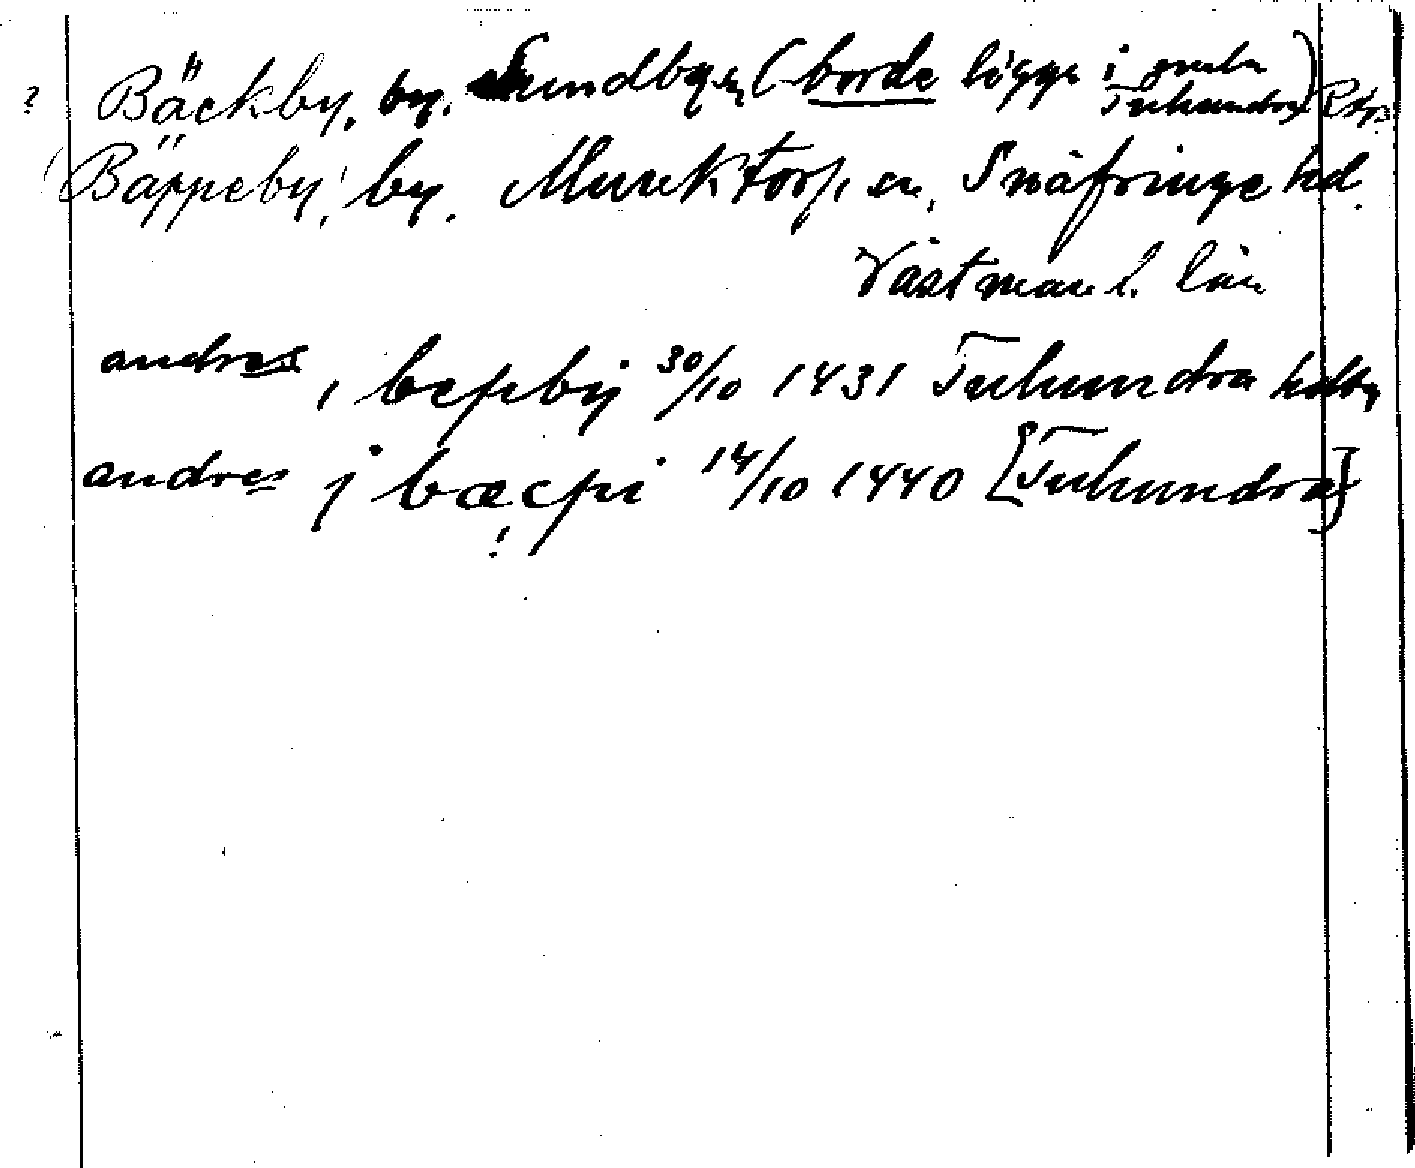 ? Bäckby, by. Sundby sn (borde ligga i gamla Tuhundra)
(Bäppeby,) by. Munktorp sn, Snäfringe hd.
Västmanl. län
andres i bepby 30/10 1431 Tuhundra hdby
andres j bæcpi ! 14/10 1440 [Tuhundra]